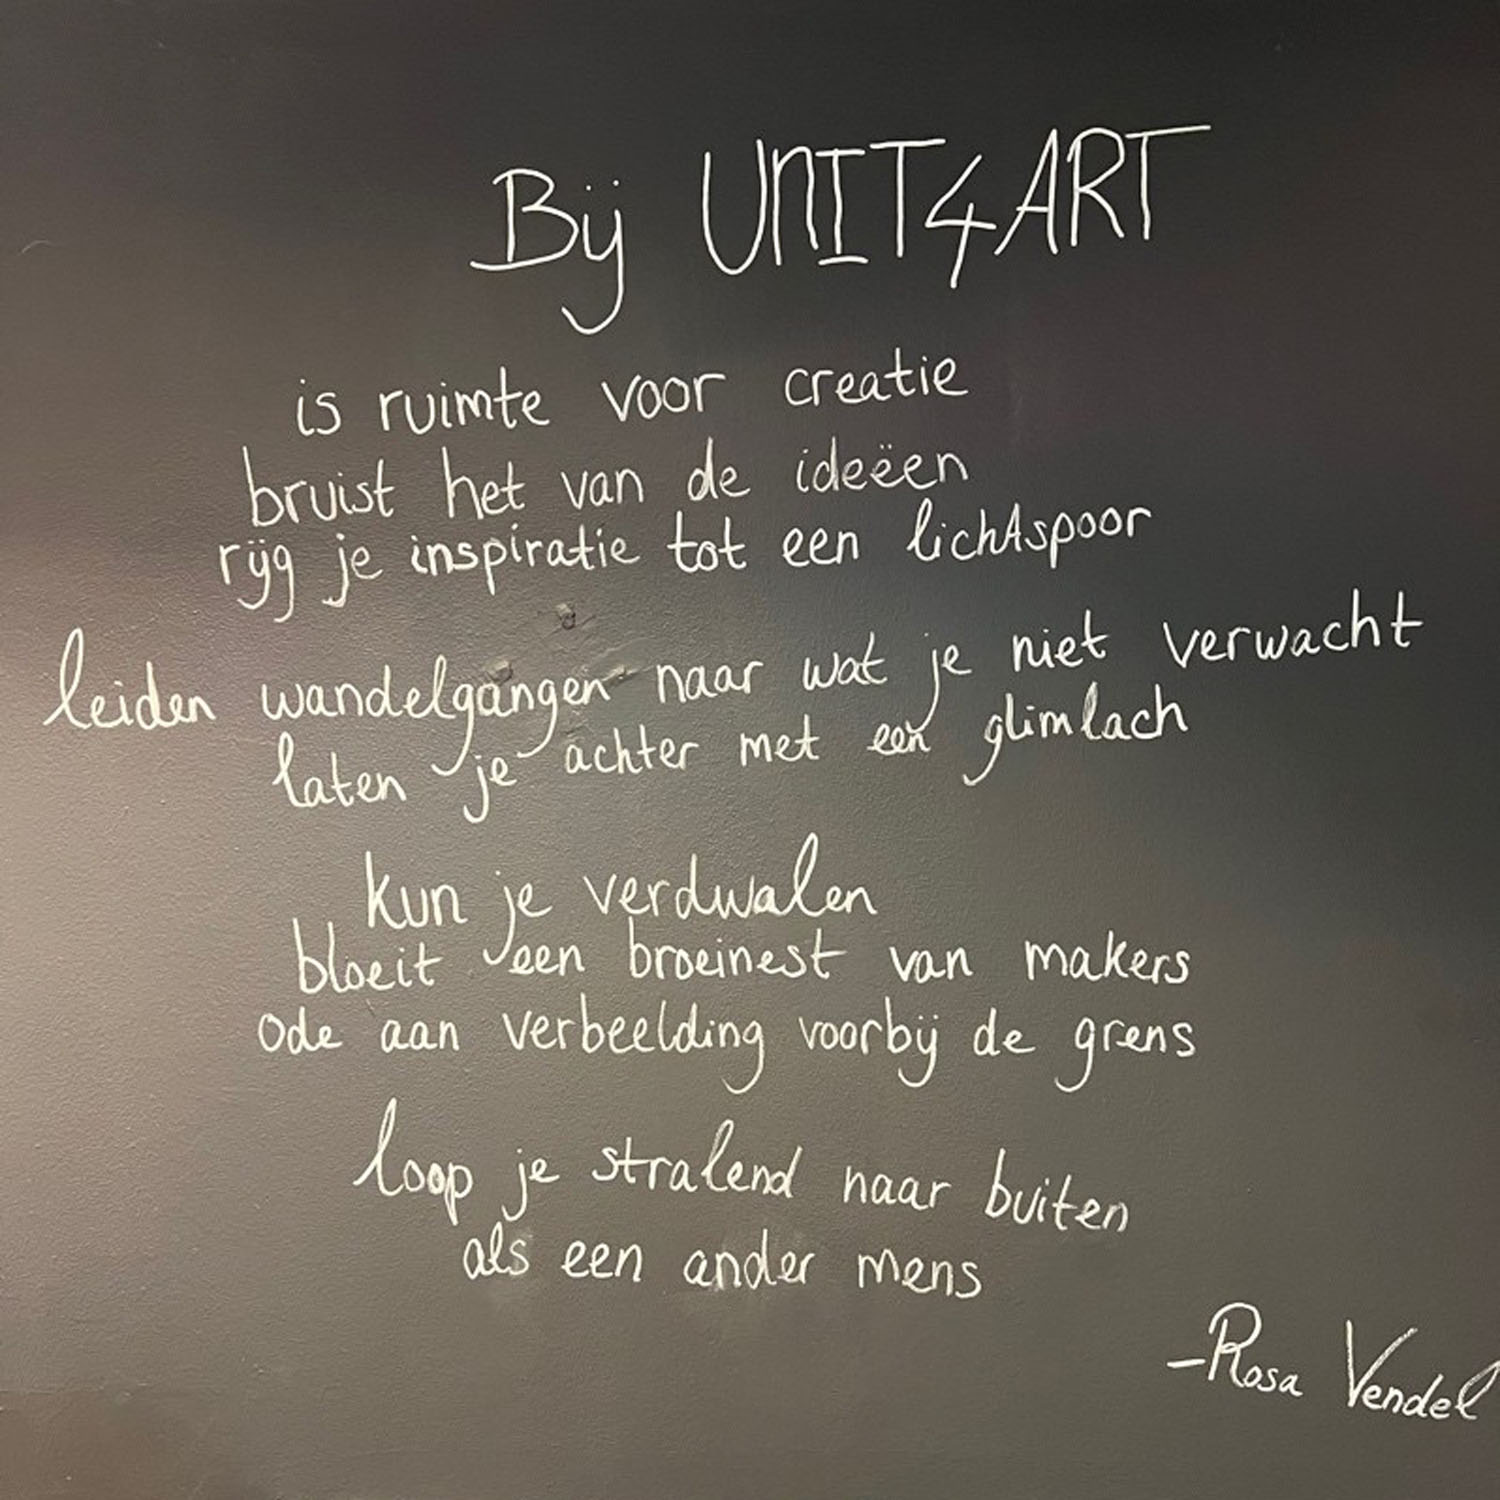 Bij UNIT4ART
is ruimte voor creatie
bruist het van de ideeën
rijg je inspiratie tot een lichtspoor
leiden wandelgangen naar wat je niet verwacht
laten je achter met een glimlach
kun je verdwalen
bloeit een broeinest van makers
ode aan verbeelding voorbij de grens
loop je stralend naar buiten
als een ander mens
-Rosa Vendel